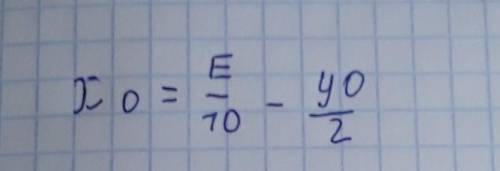 x0 = E/10 - y0/2